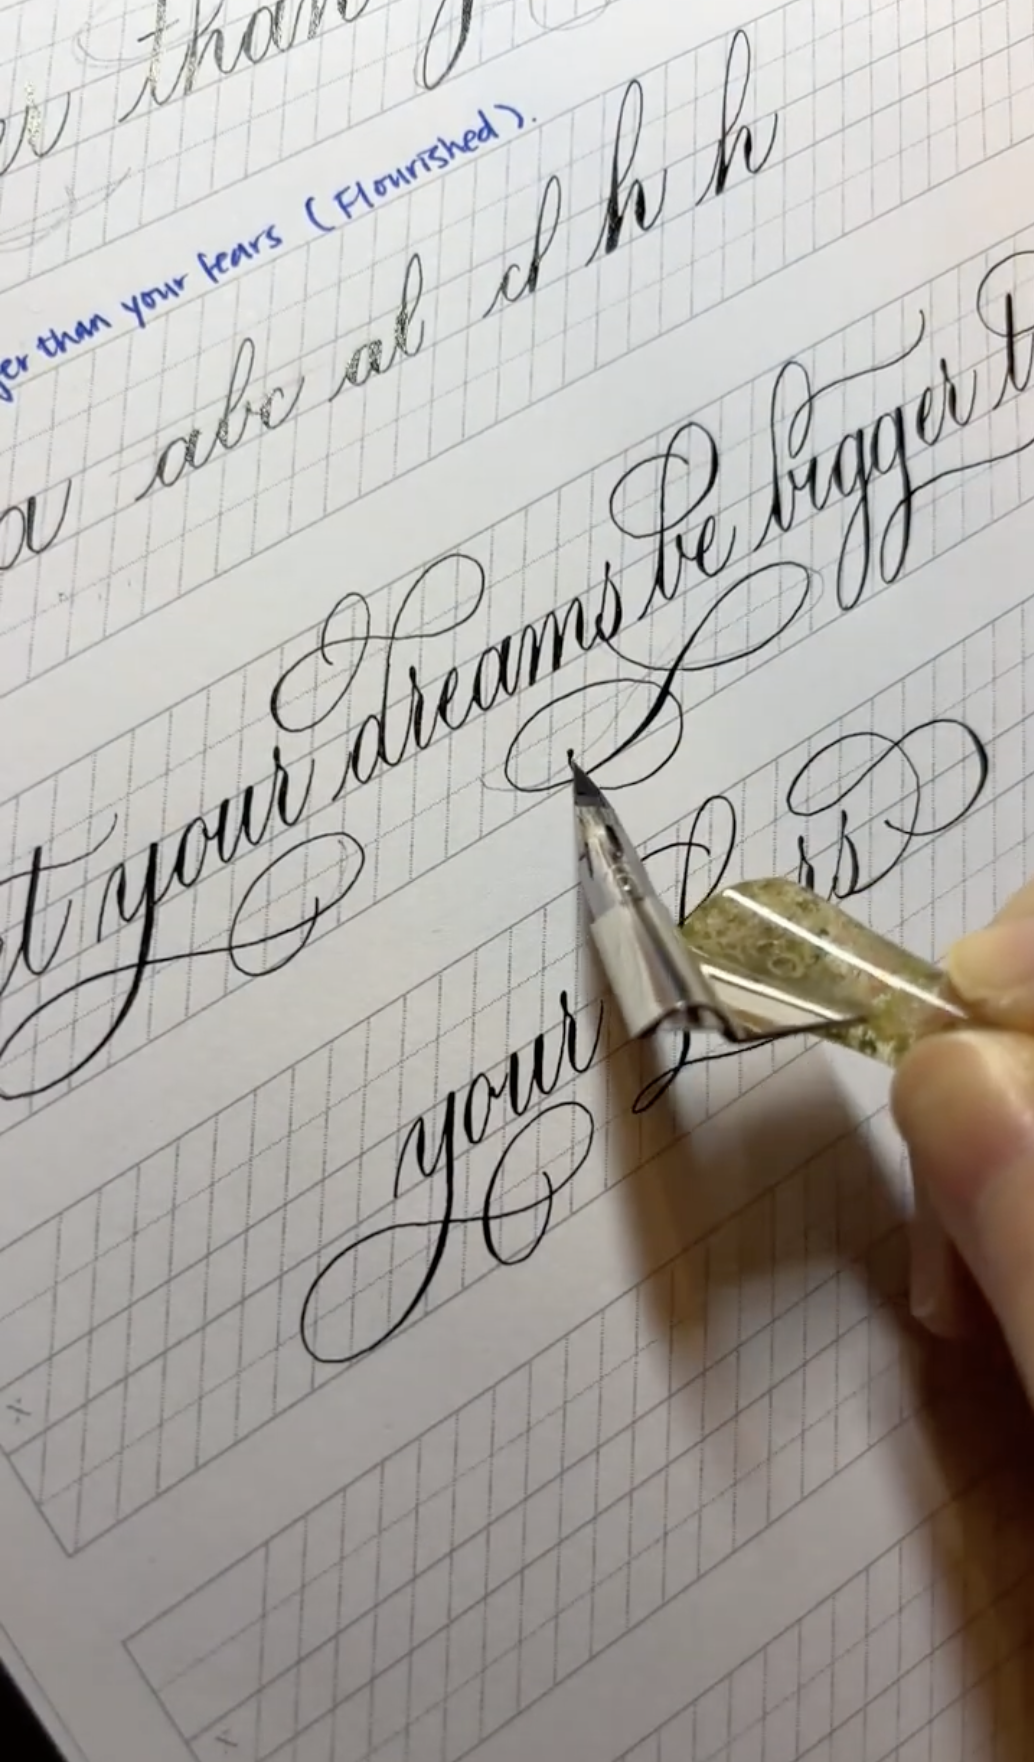 than
than your fears (Flourished).
a abc al cl h h
your dreams be bigger
your